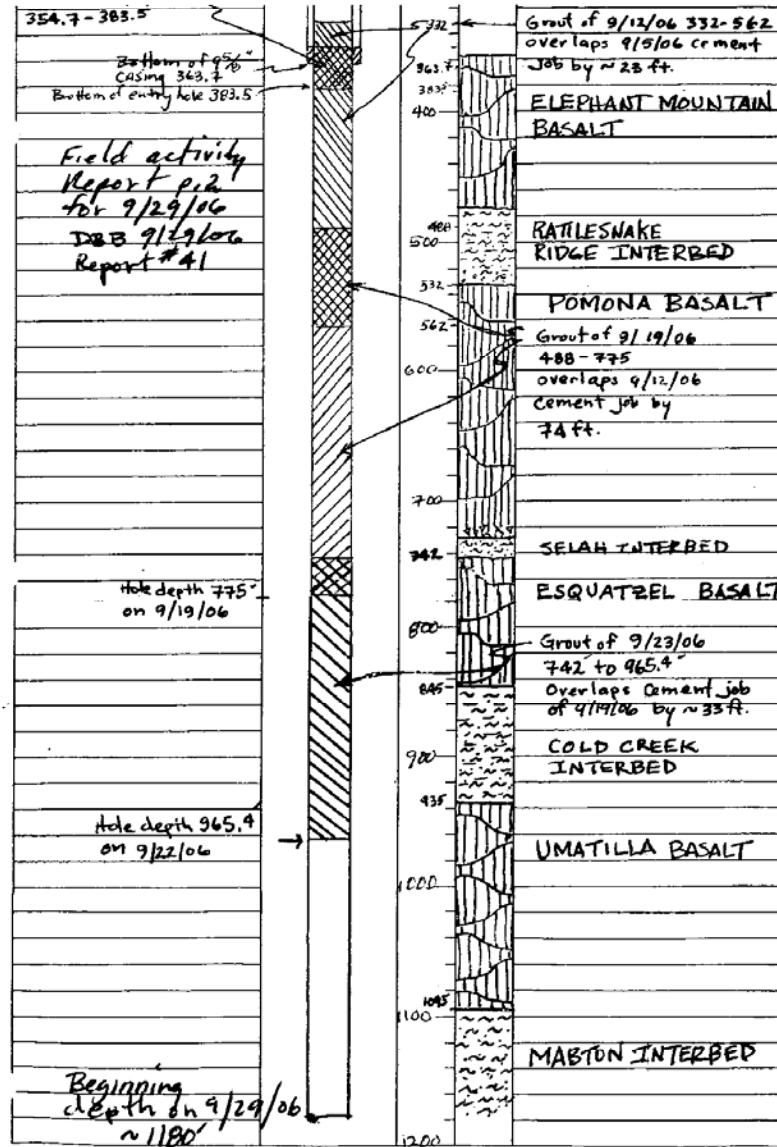 354.7-383.5
Bottom of 9 5/8"
casing 363.7
Bottom of entry hole 383.5
Field activity
Report p.2
for 9/29/06
DBB 9/29/06
Report #41
Hole depth 775'
on 9/19/06
Hole depth 965.4
on 9/22/06
Beginning
depth on 9/29/06
~1180'
332
363.7
383.5
400
488
500
532
562
600
700
742
800
845
900
935
1000
1095
1100
1200
Grout of 9/12/06 332-562
overlaps 9/5/06 cement
job by ~23 ft.
ELEPHANT MOUNTAIN
BASALT
RATTLESNAKE
RIDGE INTERBED
POMONA BASALT
Grout of 9/19/06
488-775
overlaps 9/12/06
cement job by
74 ft.
SELAH INTERBED
ESQUATZEL BASALT
Grout of 9/23/06
742' to 965.4'
Overlaps cement job
of 9/19/06 by ~33 ft.
COLD CREEK
INTERBED
UMATILLA BASALT
MABTON INTERBED